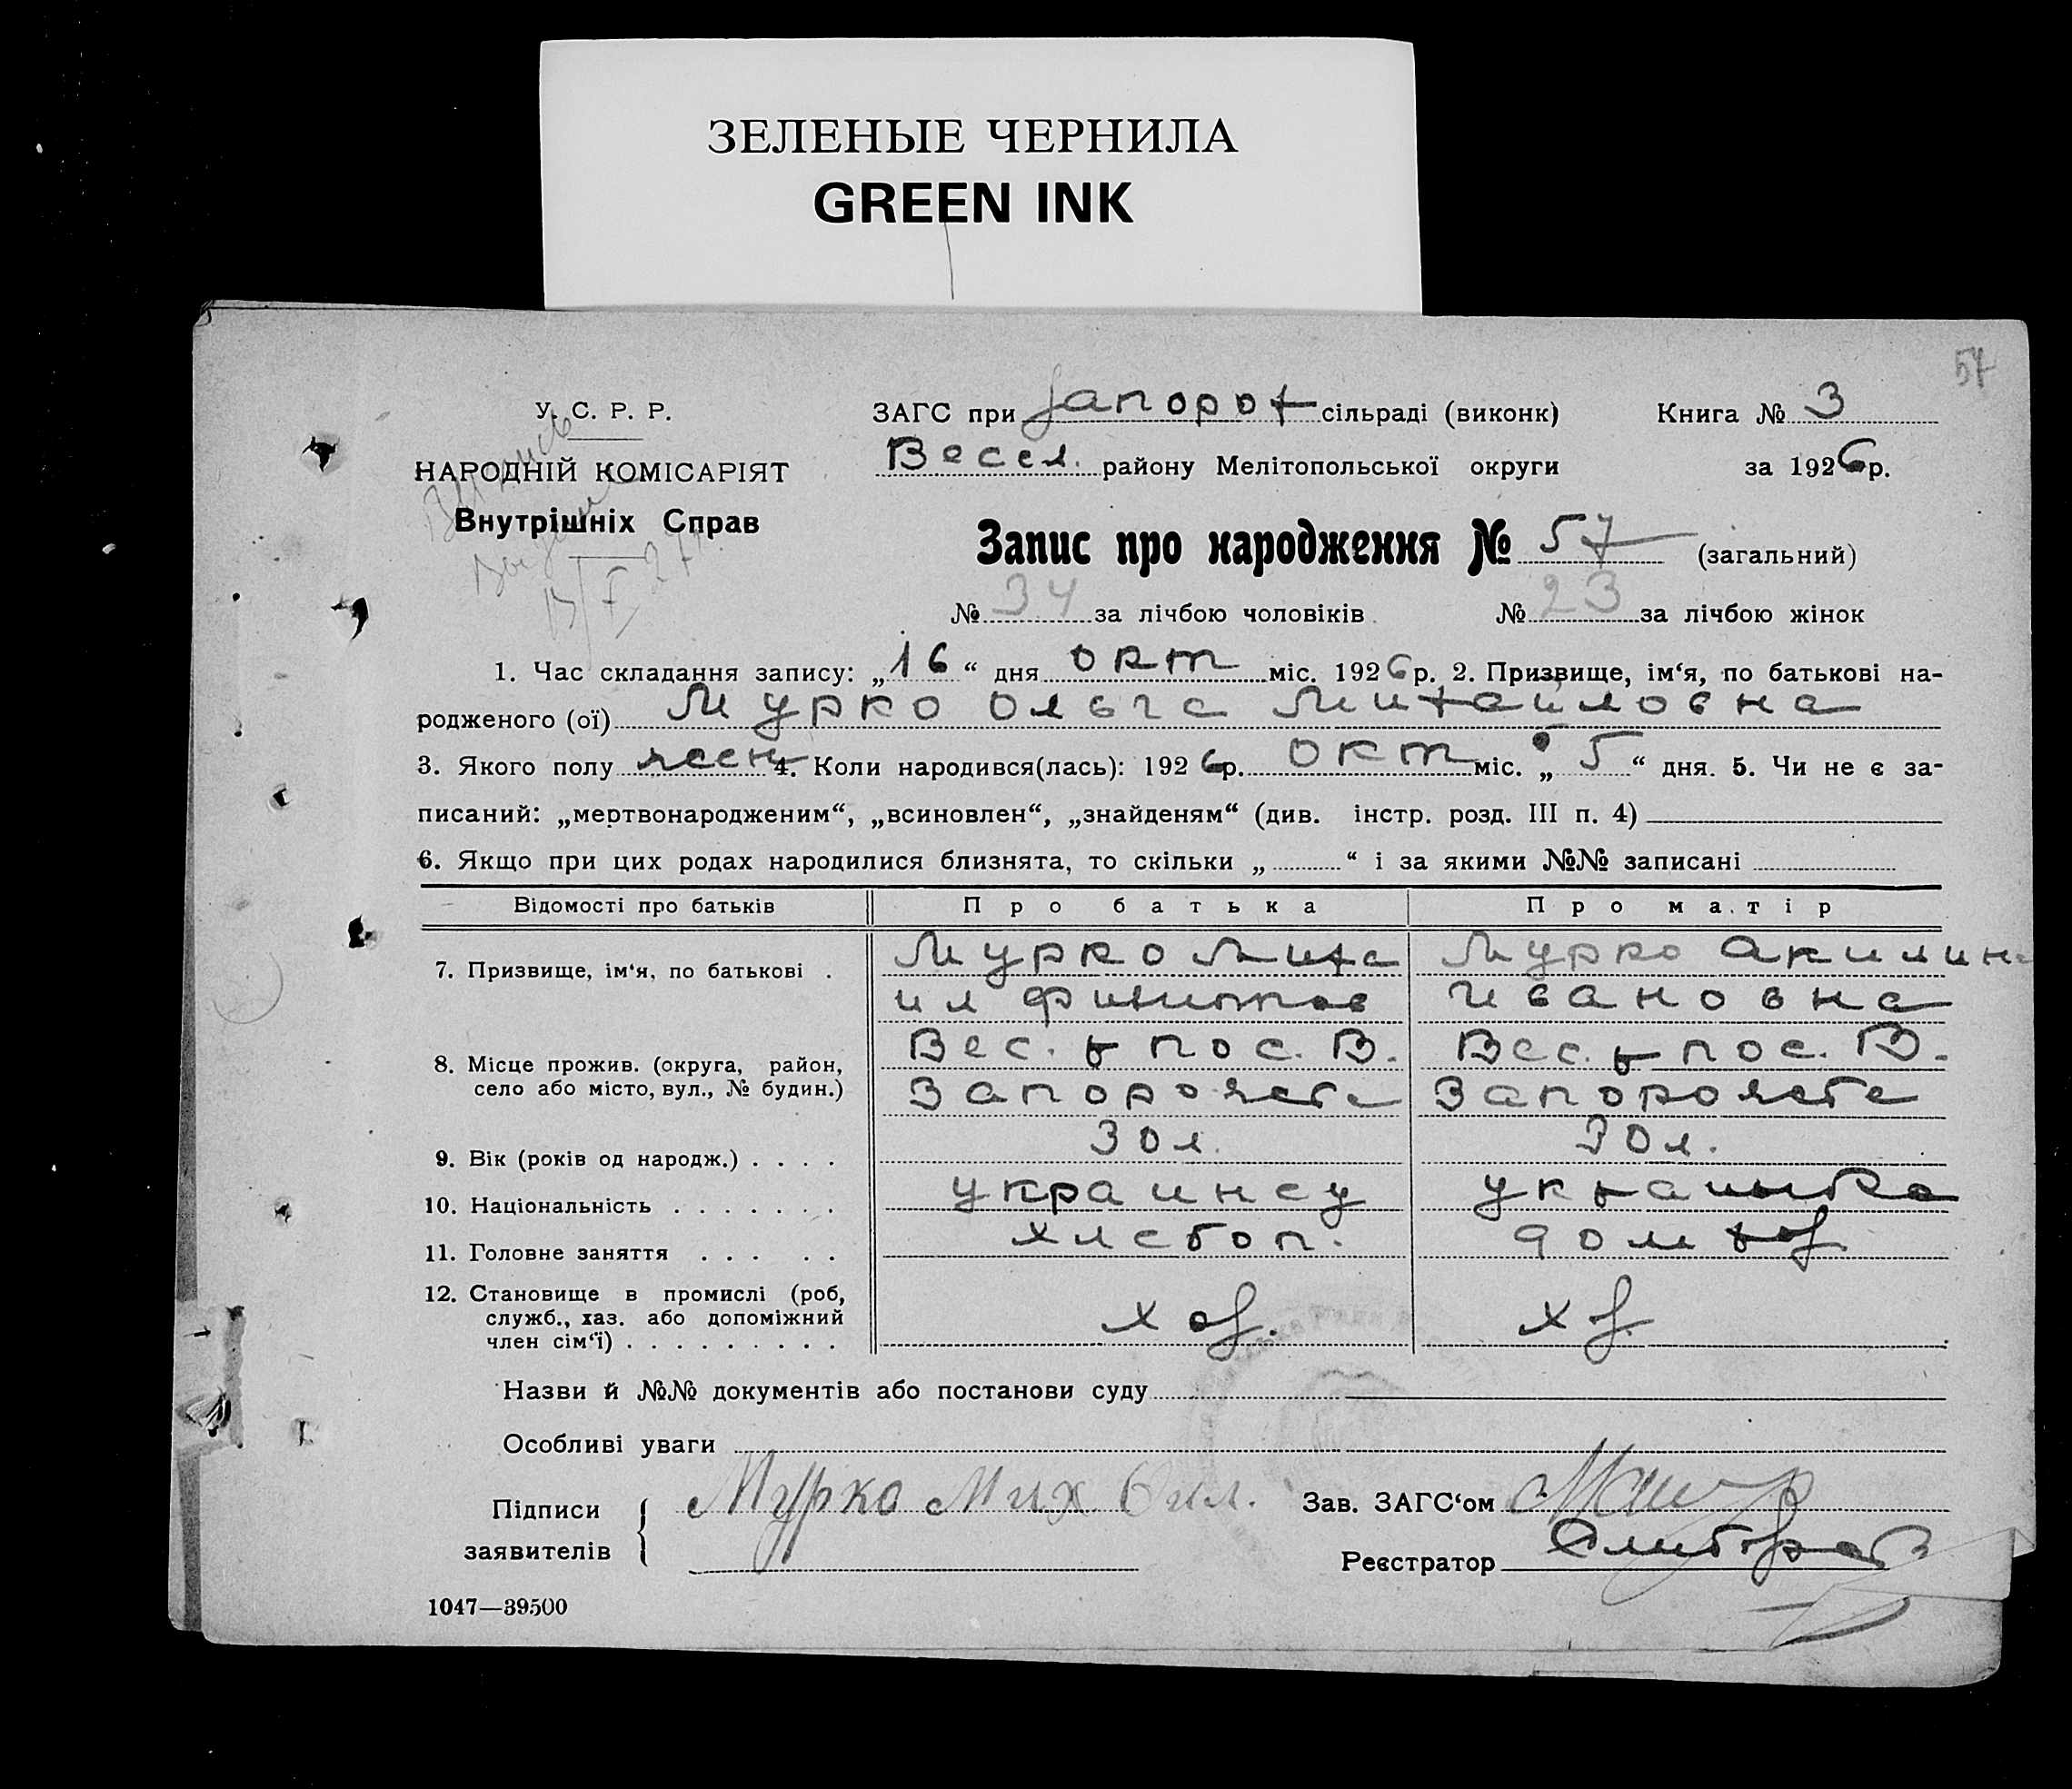 ЗЕЛЕНЫЕ ЧЕРНИЛА
GREEN INK
57
У. С. Р. Р. ЗАГС при Запорож сільраді (виконк) Книга № 3
НАРОДНІЙ КОМІСАРІЯТ Весел. району Мелітопольської округи за 1926 р.
Внутрішніх Справ
Запис про народження № 57 (загальний)
№ 34 за лічбою чоловіків № 23 за лічбою жінок
1. Час складання запису: „16“ дня окт міс. 1926 р. 2. Призвище, ім‘я, по батькові на-
родженого (ої) Мурко Ольга Михайловна
3. Якого полу жен 4. Коли народився(лась): 1926 р. окт міс. „5“ дня. 5. Чи не є за-
писаний: „мертвонародженим“, „всиновлен“, „знайденям“ (див. інстр. розд. III п. 4)
6. Якщо при цих родах народилися близнята, то скільки „ “ і за якими №№ записані
Відомості про батьків Про батька Про матір
7. Призвище, ім‘я, по батькові . Мурко Миха Мурко Акилин
ил Ивановна
8. Місце прожив. (округа, район, Вес. р пос. В. Вес. р пос. В.
село або місто, вул., № будин.) Запорожье Запорожье
9. Вік (років од народж.) . . . . 30 л. 30 л.
10. Національність . . . . . . . украинец украинка
11. Головне заняття . . . . . хлебоп. дом
12. Становище в промислі (роб,
служб., хаз. або допоміжний
член сім‘ї) . . . . . . . . .
Назви й №№ документів або постанови суду
Особливі уваги
Підписи Мурко Мих Фил. Зав. ЗАГС‘ом
заявителів Реєстратор
1047—39500